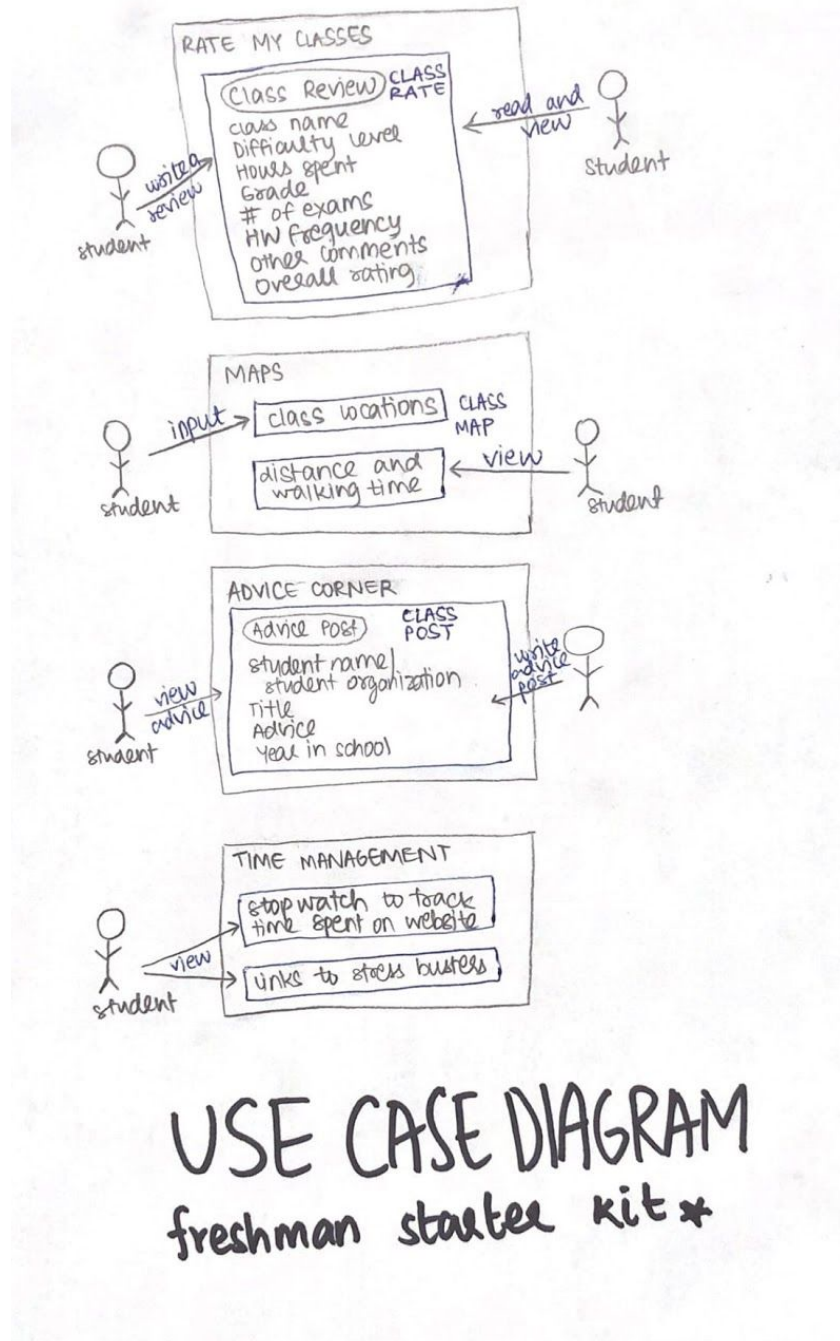 RATE MY CLASSES
Class Review
CLASS
RATE
class name
Difficulty level
Hours spent
Grade
# of exams
HW frequency
other comments
overall rating
write a
review
student
read and
view
student
MAPS
class locations
CLASS
MAP
distance and
walking time
input
student
view
student
ADVICE CORNER
Advice Post
CLASS
POST
student name/
student organization
Title
Advice
year in school
view
advice
student
write
advice
post
TIME MANAGEMENT
stopwatch to track
time spent on website
links to stress busters
view
student
USE CASE DIAGRAM
freshman starter kit *